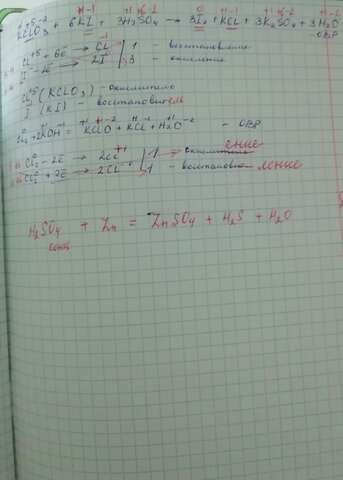 KClO₃ + 6KI + 3H₂SO₄ → 3I₂ + KCl + 3K₂SO₄ + 3H₂O
- ОВР
Cl⁺⁵ + 6ē → Cl⁻¹ | 1 - восстановление
→ 2I | 3 - окисление
Cl⁺⁵ (KClO₃) - окислитель
I⁻ (KI) - восстановитель
Cl₂⁰ + 2KOH = KClO + KCl + H₂O - ОВР
Cl₂⁰ - 2ē → 2Cl⁺¹ | 1 - окисление
Cl₂⁰ + 2ē → 2Cl⁻¹ | 1 - восстановление
H₂SO₄ + Zn = ZnSO₄ + H₂S + H₂O
конц